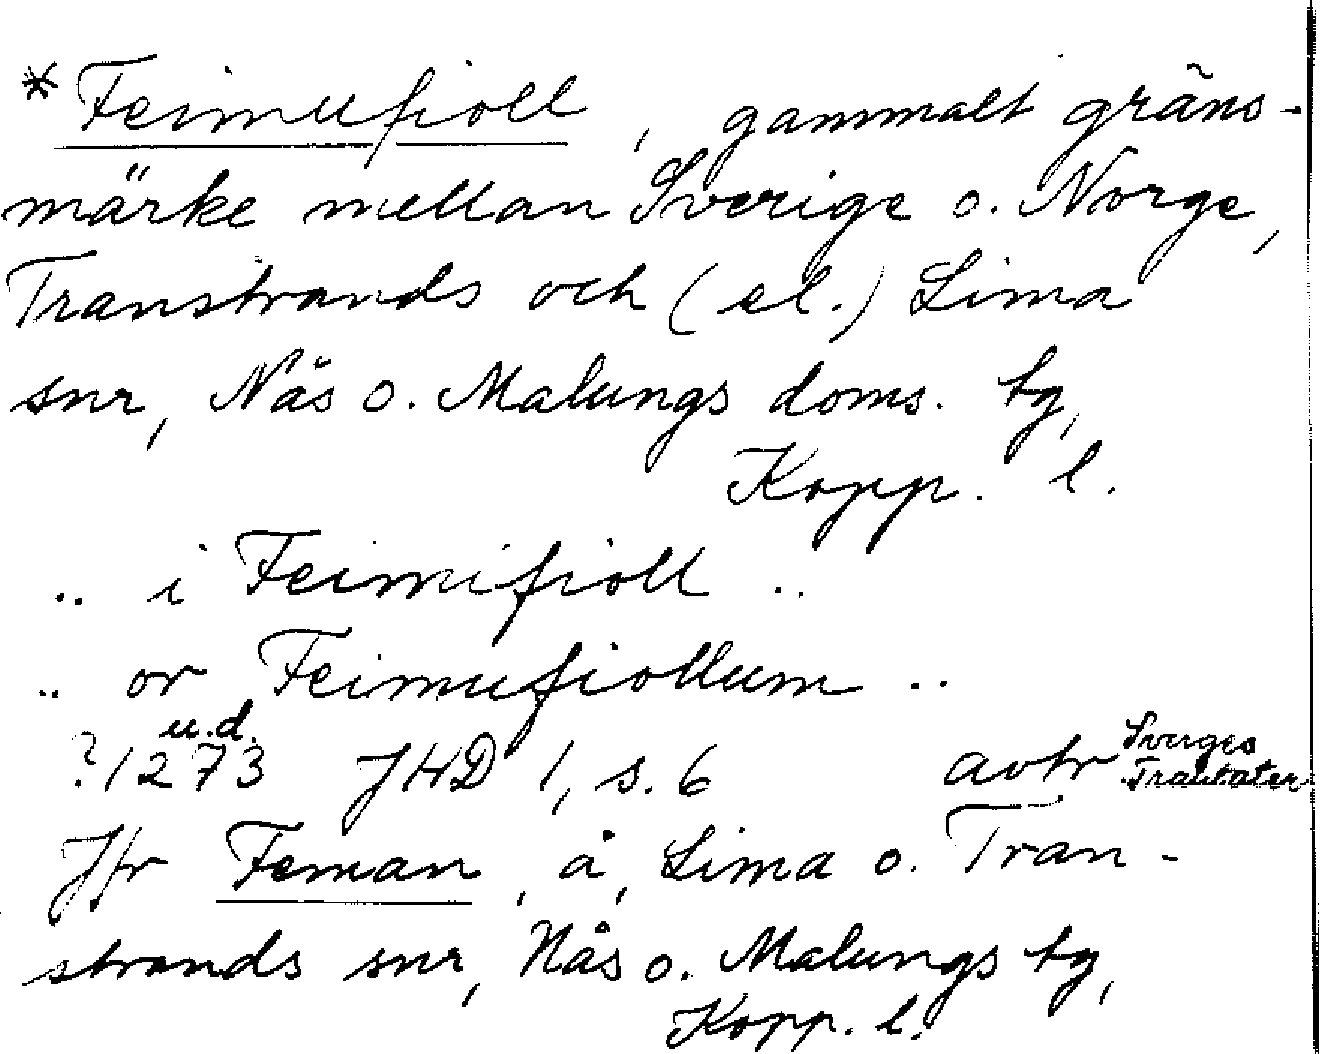 * Feimufioll, gammalt gräns-
märke mellan Sverige o. Norge,
Transtrands och (el.) Lima
snr, Nås o. Malungs doms. tg,
Kopp. l.
.. i Feimifioll ..
.. or Feimufiollum ..
u.d.
?1273 JHD 1, s. 6 avtr Sverges
Traktater
Jfr Feman, å, Lima o. Tran-
strands snr, Nås o. Malungs tg,
Kopp. l.